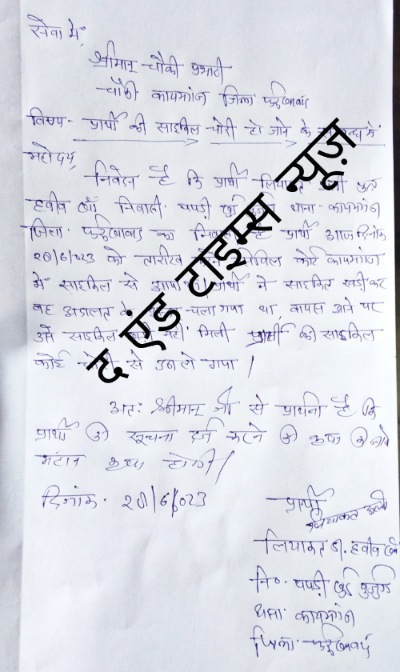 सेवा में,
श्रीमान चौकी प्रभारी
चौकी कायमगंज जिला फर्रुखाबाद
विषय- प्रार्थी की साइकिल चोरी हो जाने के सम्बन्ध में
महोदय,
निवेदन है कि प्रार्थी लियाकत अली पुत्र
हबीब खाँ निवासी पपड़ी खुर्द बुजुर्ग थाना कायमगंज
जिला फर्रुखाबाद का निवासी है प्रार्थी आज दिनांक
20/6/023 को तारीख सिविल कोर्ट कायमगंज
में साइकिल से आया था। प्रार्थी ने साइकिल खड़ी कर
वह अदालत के चला गया था, वापस आने पर
उसे साइकिल नहीं मिली प्रार्थी की साइकिल
कोई चोरी से उठा ले गया।
अतः श्रीमान जी से प्रार्थना है कि
प्रार्थी की सूचना दर्ज करने की कृपा की जाये
महान कृपा होगी।
दिनांक- 20/6/023
प्रार्थी
लियाकत अली
लियाकत s. हबीब खाँ
नि० पपड़ी खुर्द बुजुर्ग
थाना कायमगंज
जिला- फर्रुखाबाद
द एंड टाइम्स न्यूज़